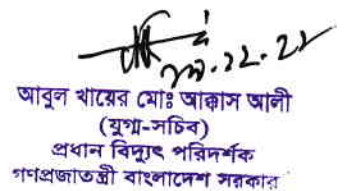 আবুল খায়ের মোঃ আক্কাস আলী
(যুগ্ম-সচিব)
প্রধান বিদ্যুৎ পরিদর্শক
গণপ্রজাতন্ত্রী বাংলাদেশ সরকার